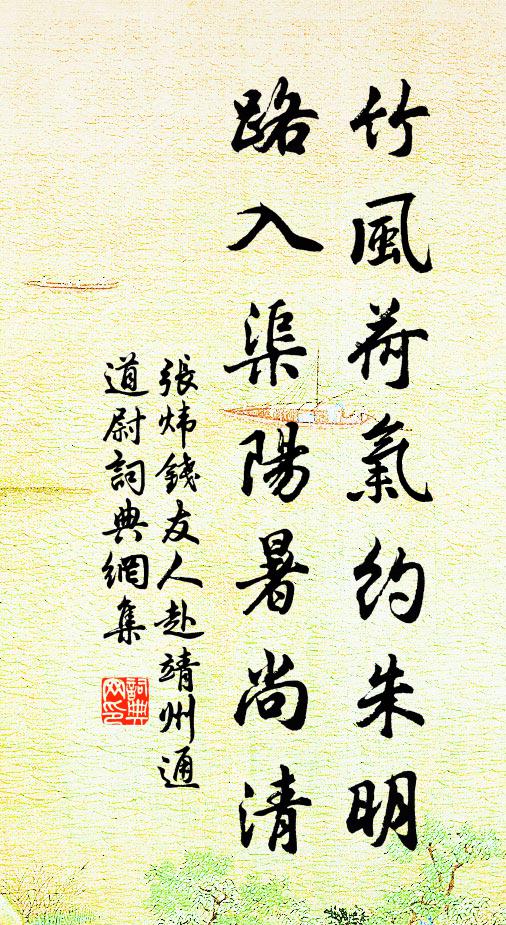 竹風荷氣約朱明
路入渠陽暑尚清
張炜錢友人赴靖州通
道尉詞典網集
詞典网印